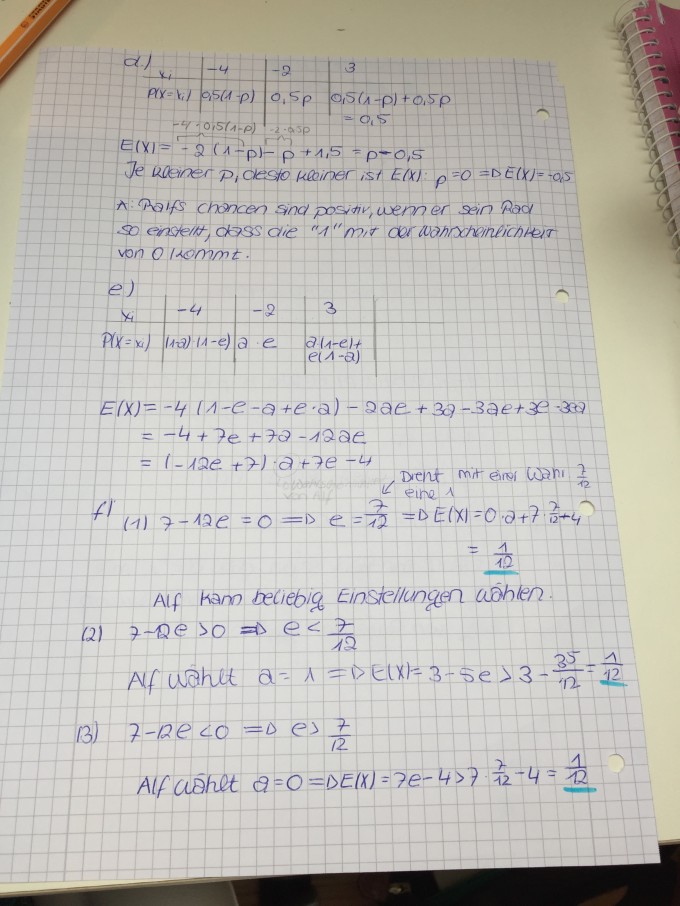 d)
xi -4 -2 3
P(X=xi) 0,5(1-p) 0,5p 0,5(1-p)+0,5p
= 0,5
-4·0,5(1-p) -2·0,5p
E(X)= -2(1-p)-p+1,5 = p-0,5
Je kleiner p, desto kleiner ist E(X): p=0 => E(X)=-0,5
A: Ralfs chancen sind positiv, wenn er sein Rad
so einstellt, dass die "1" mit der wahrscheinlichkeit
von 0 kommt.
e)
xi -4 -2 3
P(X=xi) (1-a)·(1-e) a·e a(1-e)+
e(1-a)
E(X)= -4 (1-e-a+e·a) - 2ae + 3a-3ae+3e-3ea
= -4+7e+7a-12ae
= (-12e+7)·a+7e-4
↙ Dreht mit einer Wahr. 7/12
eine 1
f) (1) 7-12e = 0 => e = 7/12 => E(X)=0·a+7·7/12-4
= 1/12
Alf kann beliebig Einstellungen wählen.
(2) 7-12e>0 => e < 7/12
Alf wählt a = 1 => E(X)= 3-5e > 3 - 35/12 = 1/12
(3) 7-12e<0 => e > 7/12
Alf wählt a=0 => E(X)=7e-4>7·7/12-4 = 1/12